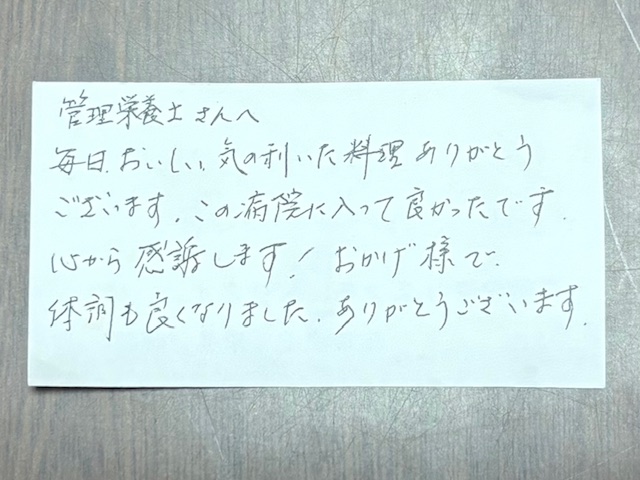 管理栄養士さんへ
毎日、おいしい、気の利いた料理ありがとう
ございます。この病院に入って良かったです。
心から感謝します!おかげ様で、
体調も良くなりました。ありがとうございます。